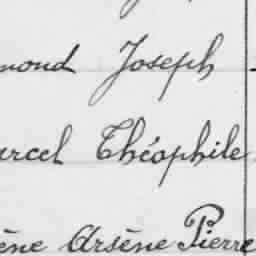 mond Joseph
arcel Théophile
ène Arsène Pierre